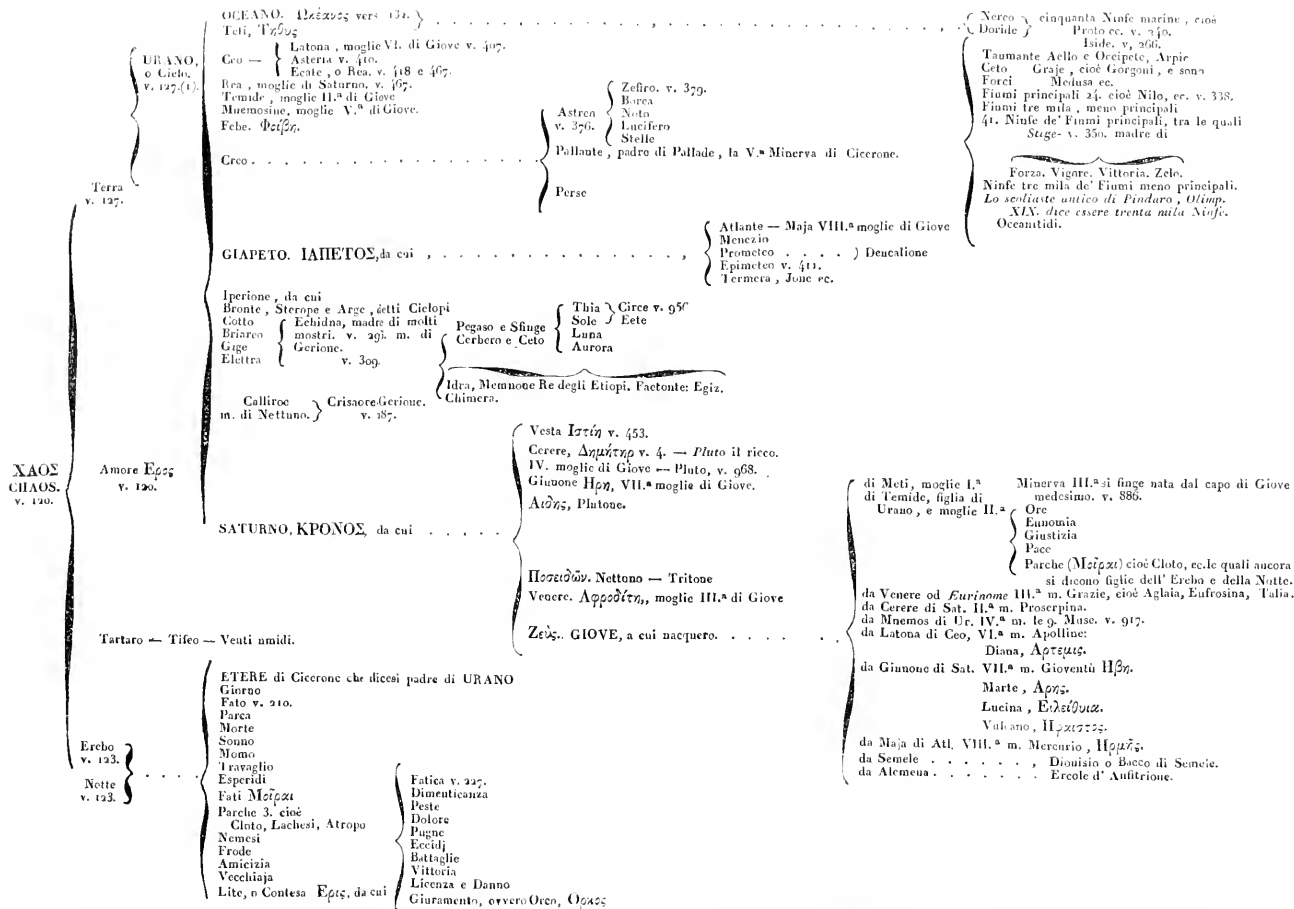 OCEANO. Ωκέανος vers 132.
Teti, Τηθυς
Ceo —
Latona, moglie VI. di Giove v. 407.
Asteria v. 410.
Ecate, o Rea. v. 418 e 467.
Rea, moglie di Saturno. v. 467.
Temide, moglie II.ª di Giove
Mnemosine, moglie V.ª di Giove.
Febe. Φοίβη.
Creo
Astreo
v. 376.
Zefiro. v. 379.
Borea
Noto
Lucifero
Stelle
Pallante, padre di Pallade, la V.ª Minerva di Cicerone.
Perse
Nereo
Doride
cinquanta Ninfe marine, cioè
Proto ec. v. 240.
Iside. v, 266.
Taumante Aello e Orcipete, Arpie
Ceto Graje, cioè Gorgoni, e sono
Forci Medusa ec.
Fiumi principali 24. cioè Nilo, ec. v. 338.
Fiumi tre mila, meno principali
41. Ninfe de' Fiumi principali, tra le quali
Stige- v. 350. madre di
Forza. Vigore. Vittoria. Zelo.
Ninfe tre mila de' Fiumi meno principali.
Lo scoliaste antico di Pindaro, Olimp.
XIX. dice essere trenta mila Ninfe.
Oceanitidi.
URANO,
o Cielo.
v. 127.(1).
Terra
v. 127.
GIAPETO. ΙΑΠΕΤΟΣ, da cui
Atlante — Maja VIII.ª moglie di Giove
Menezio
Prometeo . . . . ) Deucalione
Epimeteo v. 411.
Termera, Jone ec.
Iperione, da cui
Bronte, Sterope e Arge, detti Ciclopi
Cotto
Briareo
Gige
Elettra
Echidna, madre di molti
mostri. v. 295. m. di
Gerione.
v. 309.
Pegaso e Sfinge
Cerbero e Ceto
Thia
Sole
Luna
Aurora
Circe v. 956
Eete
Idra, Memnone Re degli Etiopi. Faetonte: Egiz.
Chimera.
Calliroe
m. di Nettuno.
Crisaore-Gerione.
v. 187.
ΧΑΟΣ
CHAOS.
v. 120.
Amore Ερος
v. 120.
SATURNO, ΚΡΟΝΟΣ, da cui
Vesta Ιστίη v. 453.
Cerere, Δημήτηρ v. 4. — Pluto il ricco.
IV. moglie di Giove — Pluto, v. 968.
Giunone Ηρη, VII.ª moglie di Giove.
Αιδης, Plutone.
Ποσειδῶν. Nettuno — Tritone
Venere. Αφροδίτη,, moglie III.ª di Giove
Ζεὺς.. GIOVE, a cui nacquero.
di Meti, moglie I.ª Minerva III.ª si finge nata dal capo di Giove
medesimo. v. 886.
di Temide, figlia di
Urano, e moglie II.ª
Ore
Eunomia
Giustizia
Pace
Parche (Μοῖραι) cioè Cloto, ec. le quali ancora
si dicono figlie dell' Erebo e della Notte.
da Venere od Eurinome III.ª m. Grazie, cioè Aglaia, Eufrosina, Talia.
da Cerere di Sat. II.ª m. Proserpina.
da Mnemos di Ur. IV.ª m. le 9. Muse. v. 917.
da Latona di Ceo, VI.ª m. Apolline:
Diana, Αρτεμις.
da Giunone di Sat. VII.ª m. Gioventù Ηβη.
Marte, Αρης.
Lucina, Ειλείθυια.
Vulcano, Ηφαιστος.
da Maja di Atl. VIII.ª m. Mercurio, Ηρμῆς.
da Semele . . . . . . , Dionisio o Bacco di Semele.
da Alcmena . . . . . . . Ercole d' Anfitrione.
Tartaro — Tifeo — Venti umidi.
Erebo
v. 123.
Notte
v. 123.
ETERE di Cicerone che dicesi padre di URANO
Giorno
Fato v. 210.
Parca
Morte
Sonno
Momo
Travaglio
Esperidi
Fati Μοῖραι
Parche 3. cioè
Cloto, Lachesi, Atropo
Nemesi
Frode
Amicizia
Vecchiaja
Lite, o Contesa Ερις, da cui
Fatica v. 227.
Dimenticanza
Peste
Dolore
Pugne
Eccidj
Battaglie
Vittoria
Licenza e Danno
Giuramento, ovvero Orco, Ορκος